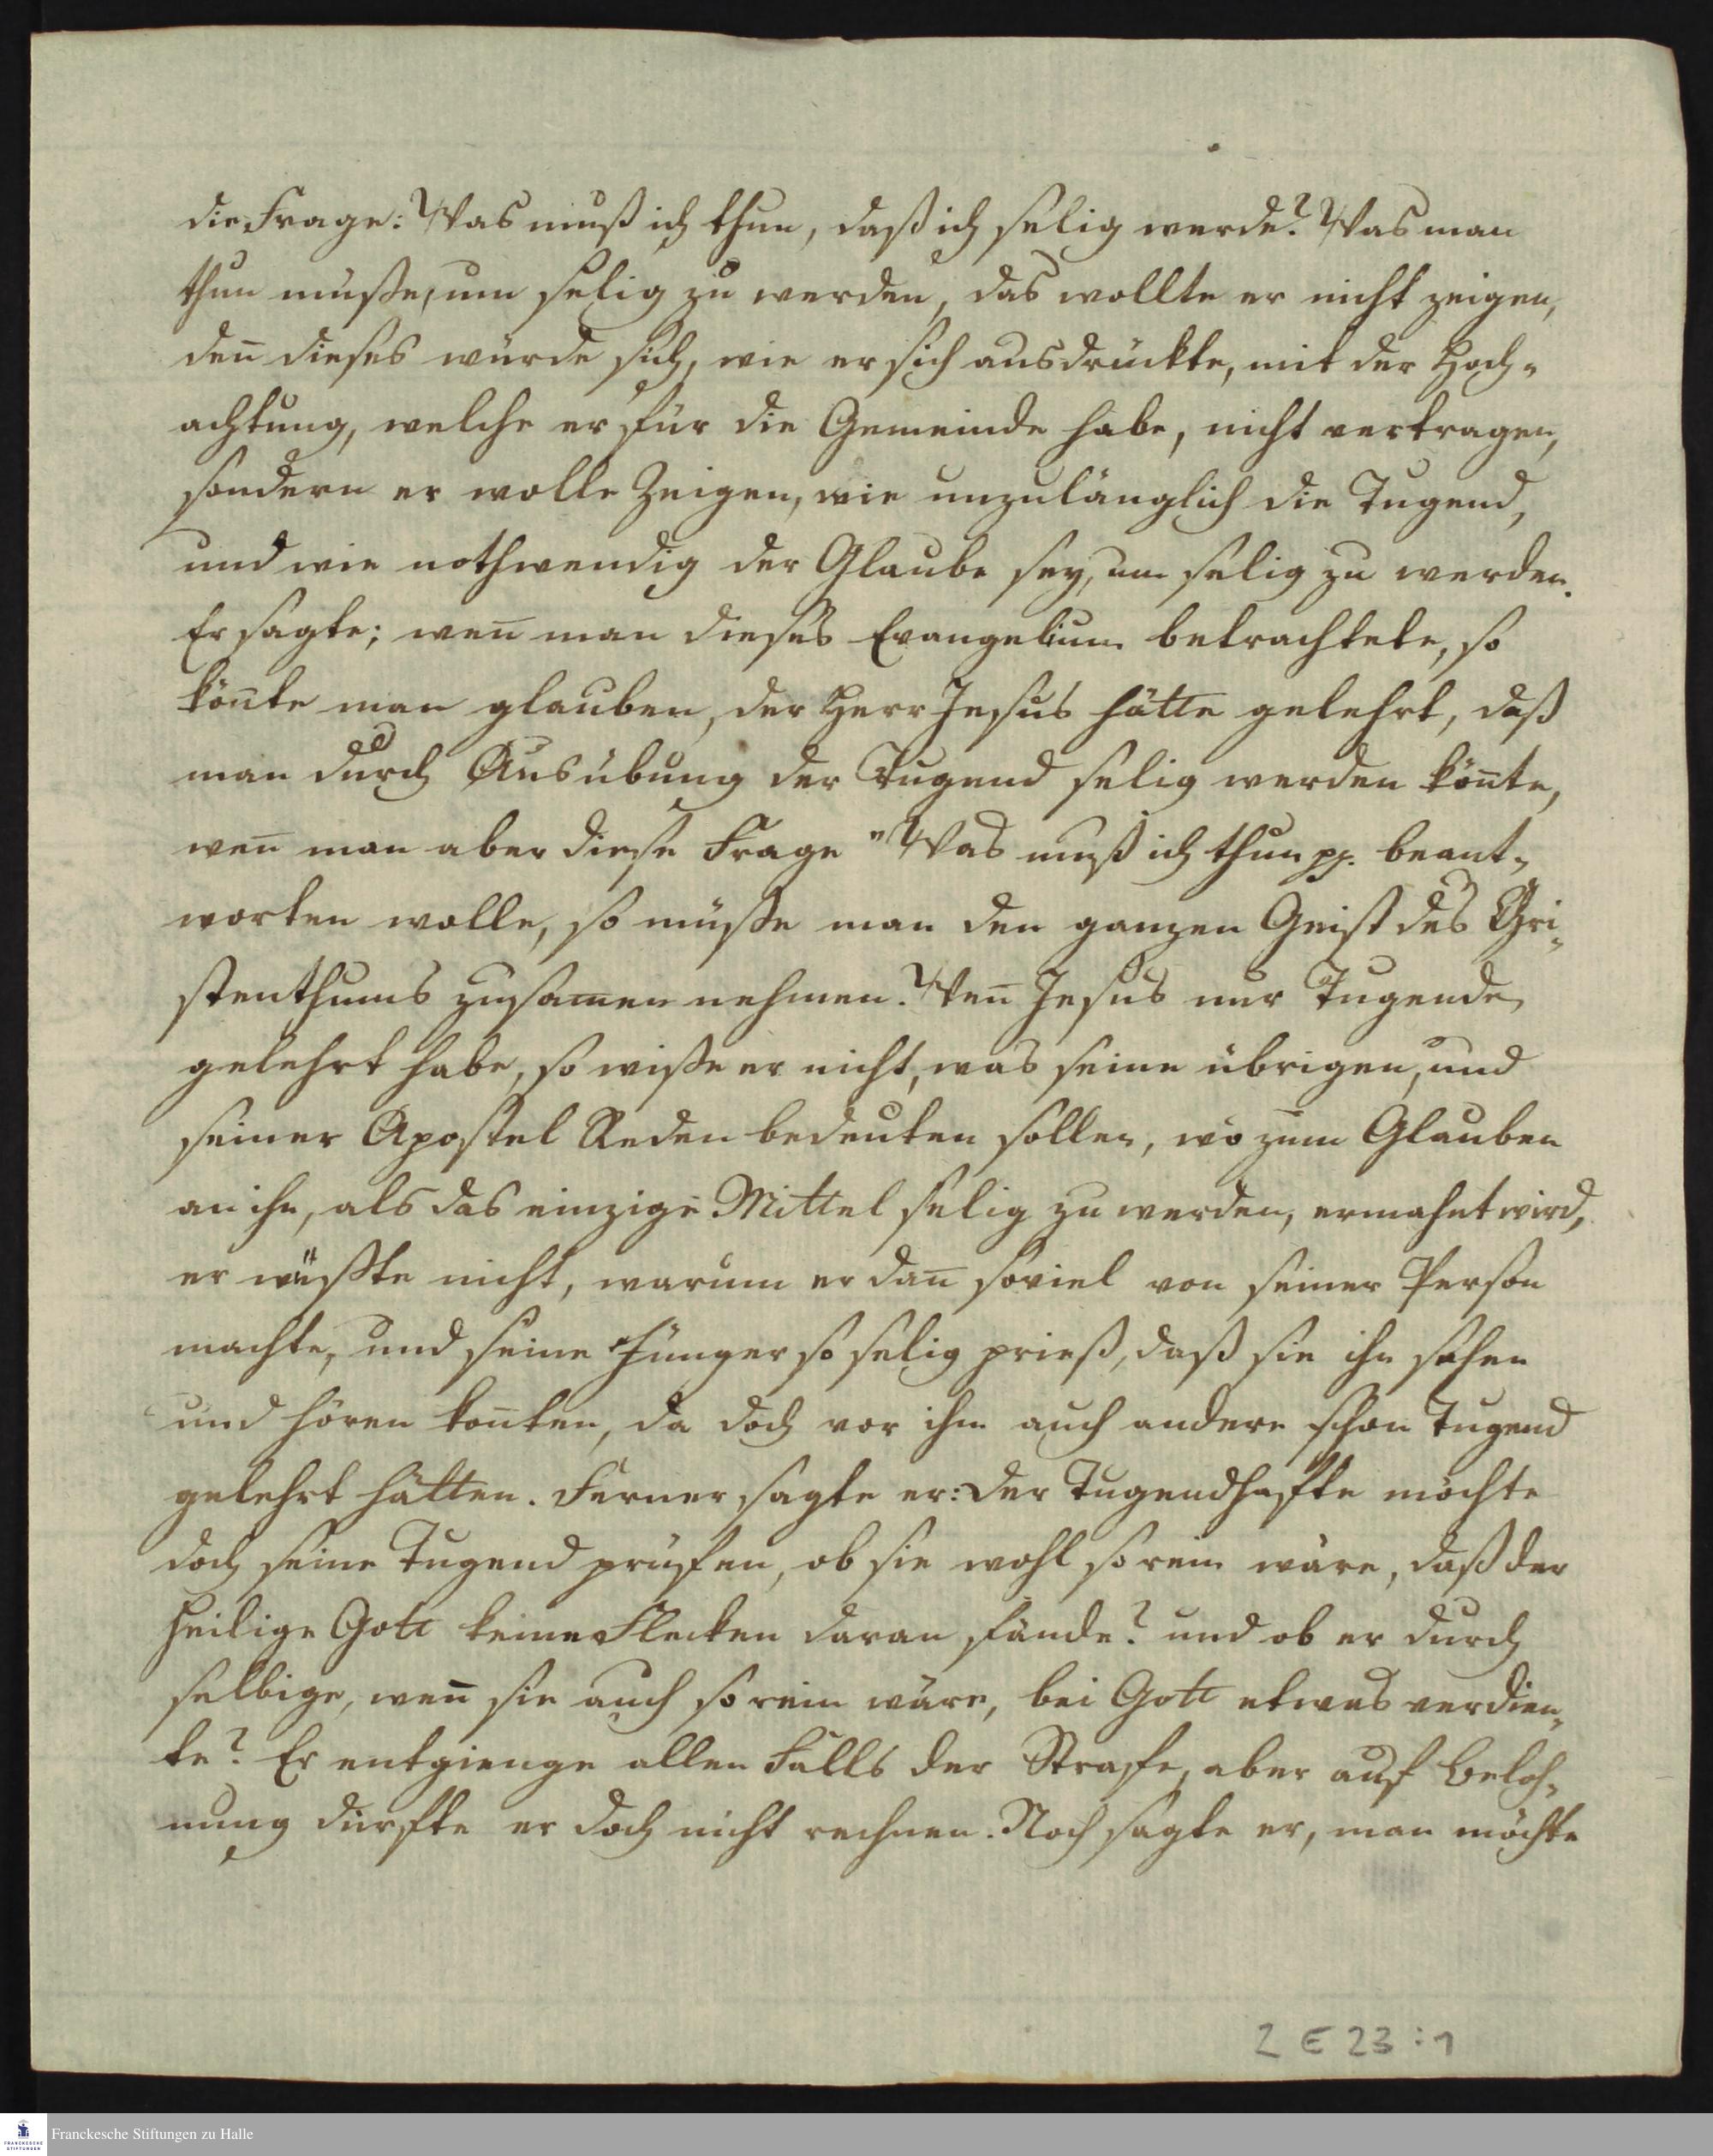 die Frage: Was muß ich thun, daß ich selig werde? Was man
thun müße, um selig zu werden, das wollte er nicht zeigen,
den̅ dieses würde sich, wie er sich ausdrückte, mit der Hoch-
achtung, welche er für die Gemeinde habe, nicht vertragen,
sondern er wolle Zeigen, wie unzulänglich die Tugend,
und wie nothwendig der Glaube sey, um selig zu werden.
Er sagte; wen̅ man dieses Evangelium betrachtete, so
kön̅te man glauben, der Herr Jesus hätte gelehrt, daß
man durch Ausübung der Tugend selig werden kön̅te,
wen̅ man aber diese Frage "Was muß ich thun pp. beant-
worten wolle, so müße man den ganzen Geist des Gri-
stenthums zusam̅en nehmen. Wen̅ Jesus nur Tugende
gelehrt habe, so wiße er nicht, was seine übrigen, und
seiner Apostel Reden bedeuten sollen, wo zum Glauben
an ihn, als das einzige Mittel selig zu werden, ermahnt wird,
er wüßte nicht, warum er dan̅ soviel von seiner Person
machte, und seine Jünger so selig prieß, daß sie ihn sehen
und hören kon̅ten, da doch vor ihm auch andere schon Tugend
gelehrt hätten. Ferner sagte er: der Tugendhafte möchte
doch seine Tugend prüfen, ob sie wohl so rein wäre, daß der
heilige Gott keine Flecken daran fände? und ob er durch
selbige, wen̅ sie auch so rein wäre, bei Gott etwas verdien-
te? Er entgienge allen Falls der Strafe, aber auf Beloh-
nung dürfte er doch nicht rechnen. Noch sagte er, man möchte
2 E 23 : 1
Franckesche Stiftungen zu Halle
FRANCKESCHE
STIFTUNGEN